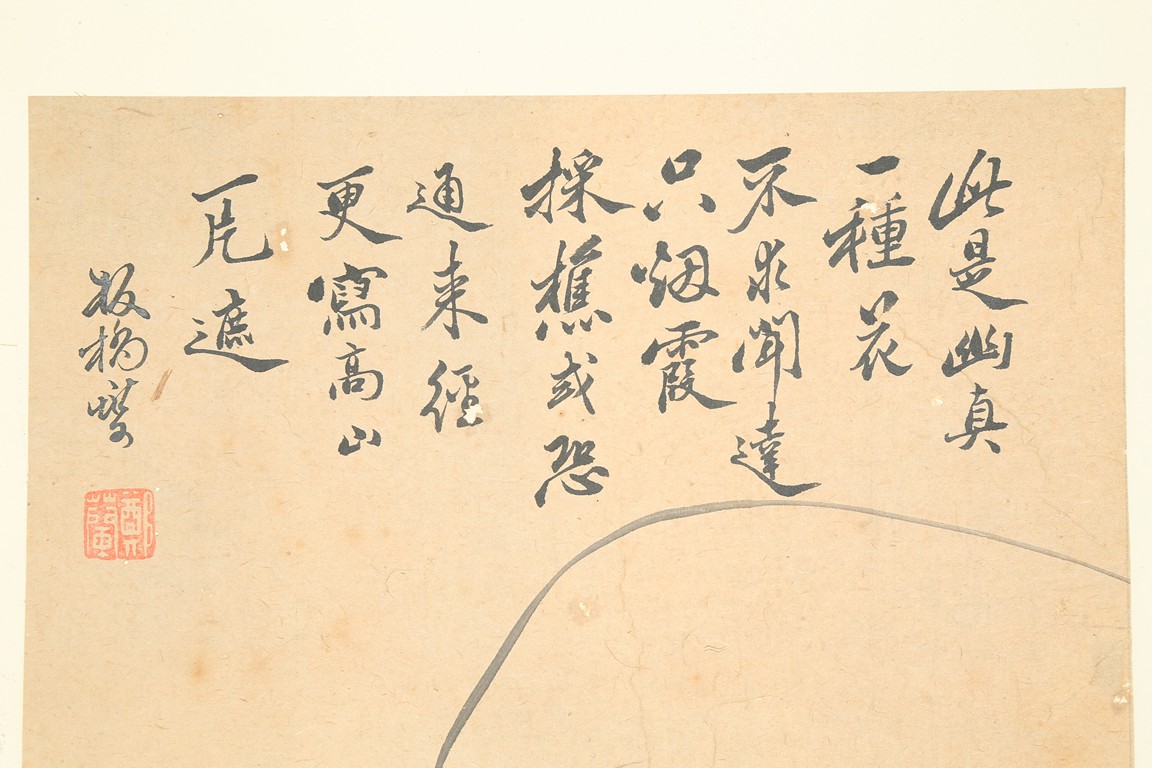 此是幽真
一種花
不求聞達
只烟霞
採樵或恐
通来徑
更寫高山
一片遮
板橋燮
鄭燮